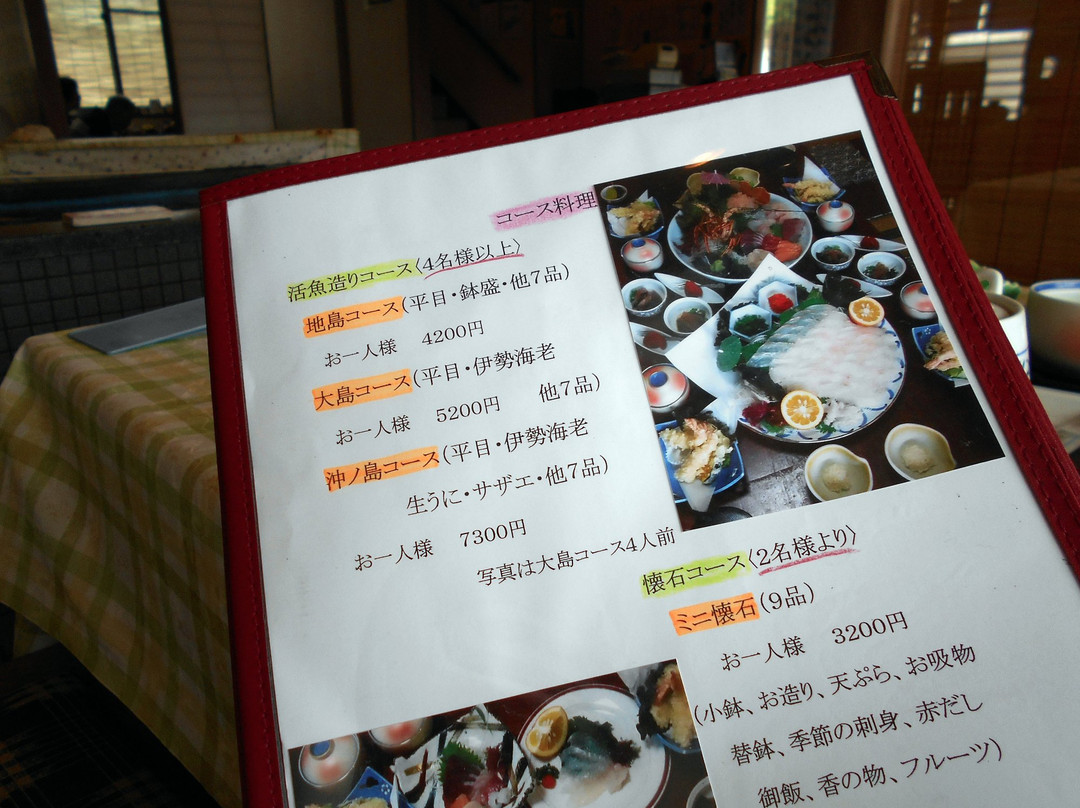 コース料理
活魚造りコース〈4名様以上〉
地島コース(平目・鉢盛・他7品)
お一人様 4200円
大島コース(平目・伊勢海老
お一人様 5200円 他7品)
沖ノ島コース(平目・伊勢海老
生うに・サザエ・他7品)
お一人様 7300円
写真は大島コース4人前
懐石コース〈2名様より〉
ミニ懐石(9品)
お一人様 3200円
(小鉢、お造り、天ぷら、お吸物
替鉢、季節の刺身、赤だし
御飯、香の物、フルーツ)